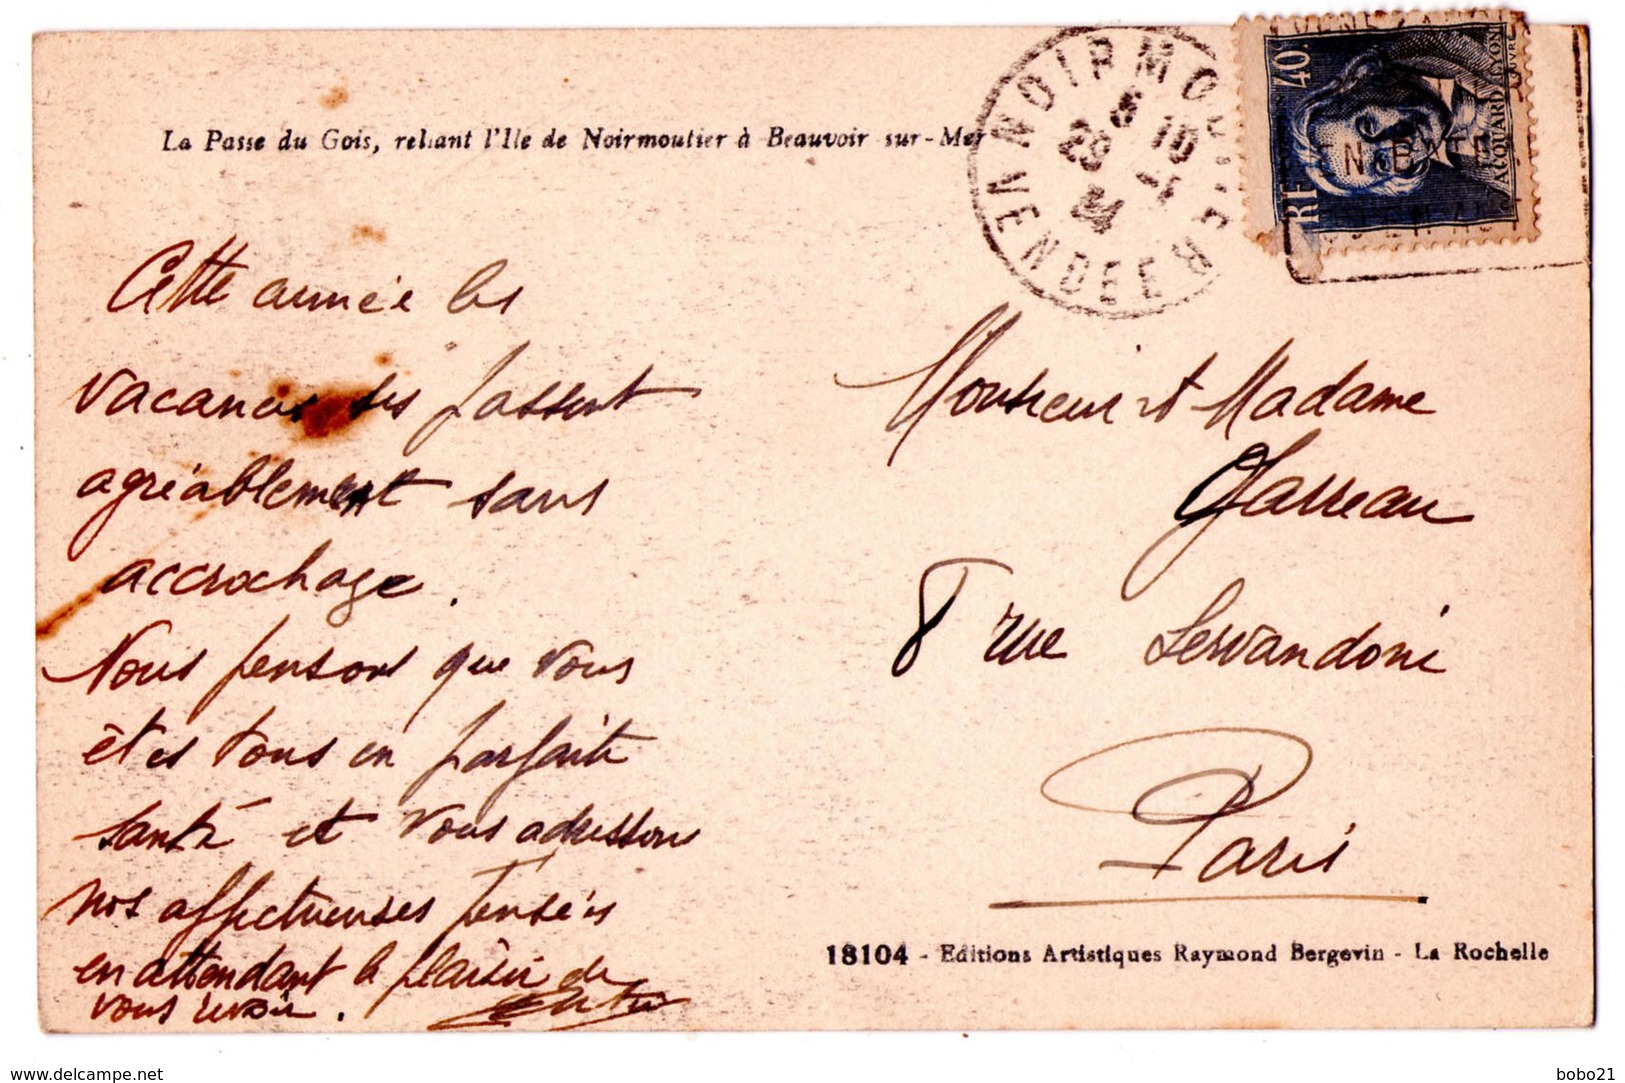 La Passe du Gois, reliant l'Ile de Noirmoutier à Beauvoir sur-Mer
NOIRMOUTIER
VENDEE
RF 40
JACQUARD LYON
EN BATEAU
Cette année les
vacances se passent
agréablement sans
accrochage.
Nous pensons que vous
êtes tous en parfaite
santé et vous adressons
nos affectueuses pensées
en attendant le plaisir de
vous revoir.
Monsieur et Madame
Garreau
8 rue Servandoni
Paris
18104 - Editions Artistiques Raymond Bergevin - La Rochelle
www.delcampe.net
bobo21